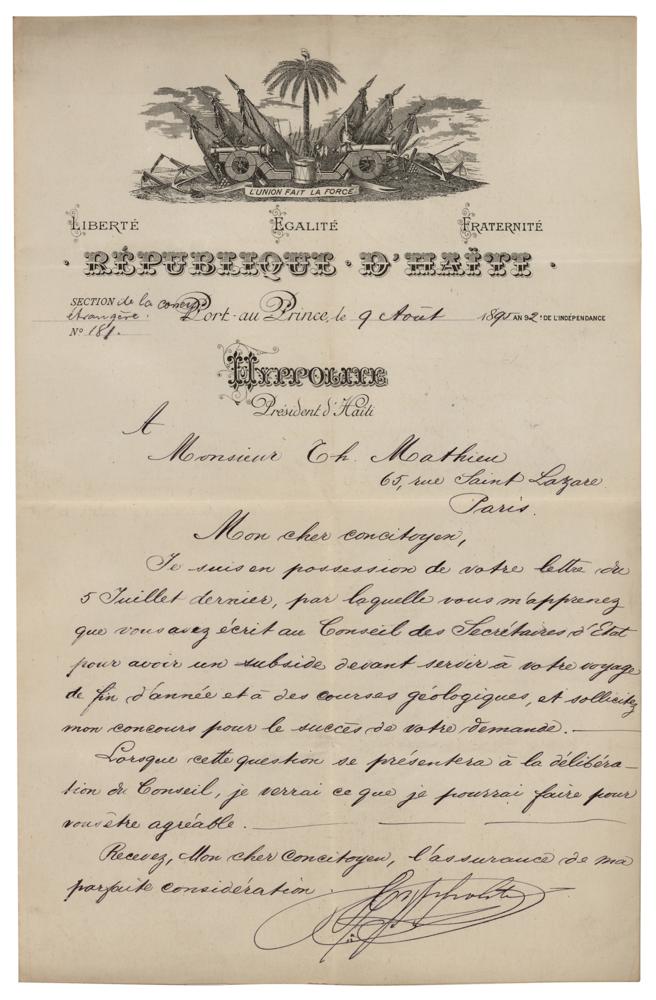 L'UNION FAIT LA FORCE
LIBERTÉ EGALITÉ FRATERNITÉ
RÉPUBLIQUE D'HAÏTI
SECTION de la
étrangère.
Port-au-Prince, le 9 Août 189 AN 92e DE L'INDÉPENDANCE
No 181.
HYPPOLITE
Président d'Haïti
A
Monsieur Th. Mathieu
65, rue Saint Lazare
Paris.
Mon cher concitoyen,
Je suis en possession de votre lettre du
5 Juillet dernier, par laquelle vous m'apprenez
que vous avez écrit au Conseil des Secrétaires d'Etat
pour avoir un subside devant servir à votre voyage
de fin d'année et à des courses géologiques, et sollicitez
mon concours pour le succès de votre demande.
Lorsque cette question se présentera à la délibéra-
tion du Conseil, je verrai ce que je pourrai faire pour
vous être agréable.
Recevez, Mon cher Concitoyen, l'assurance de ma
parfaite considération.
Hyppolite